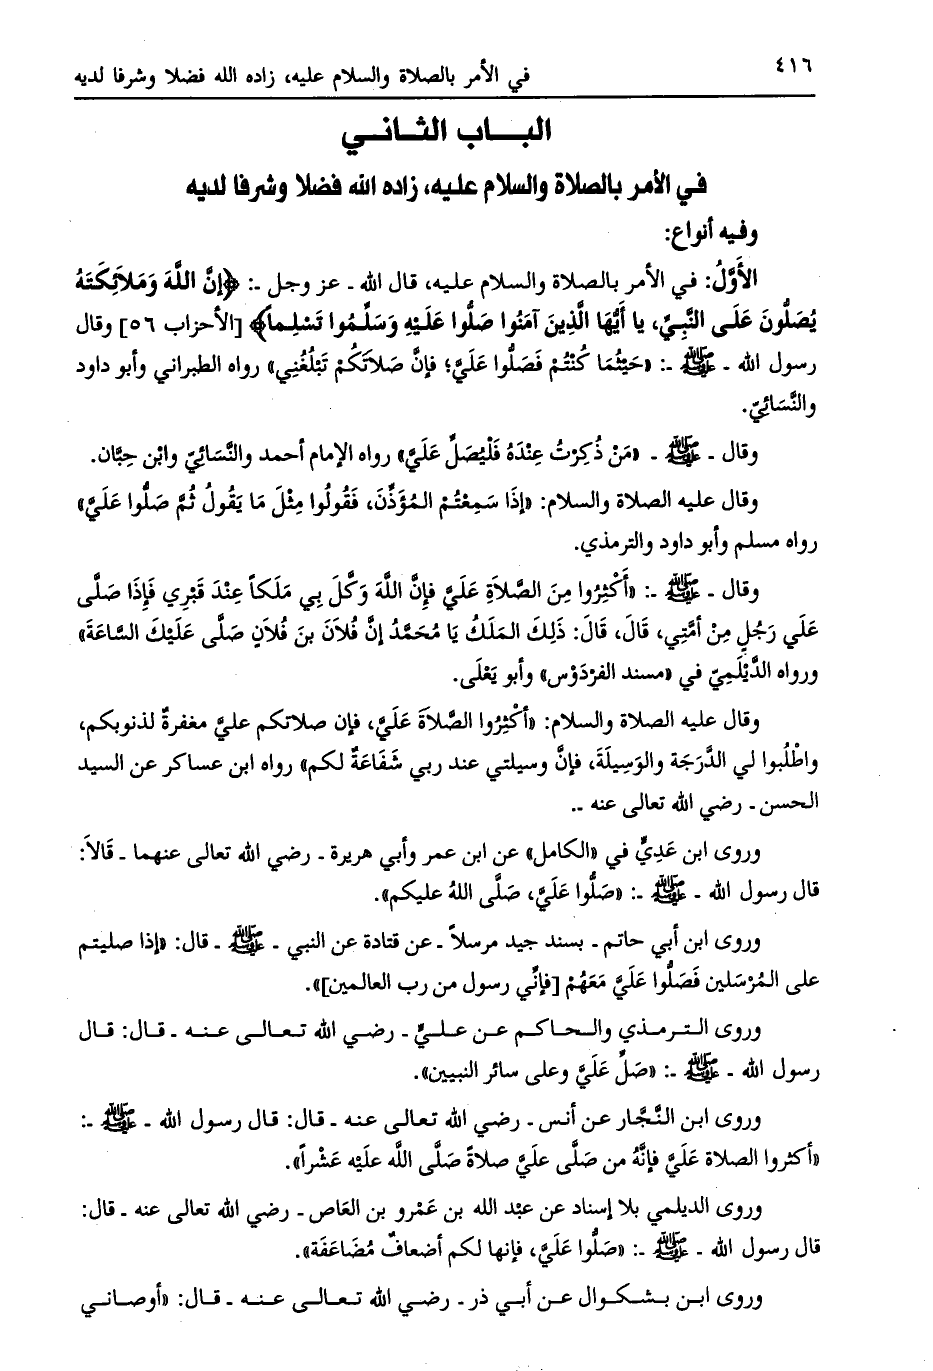 ٤١٦
في الأمر بالصلاة والسلام عليه، زاده الله فضلا وشرفا لديه
البـــاب الثانــي
في الأمر بالصلاة والسلام عليه، زاده الله فضلا وشرفا لديه
وفيه أنواع:
الأَوَّلُ: في الأمر بالصلاة والسلام عليه، قال الله ـ عز وجل ـ: ﴿إِنَّ اللَّهَ وَمَلاَئِكَتَهُ
يُصَلُّونَ عَلَى النَّبِيِّ، يا أَيُّهَا الَّذِينَ آمَنُوا صَلُّوا عَلَيْهِ وَسَلِّمُوا تَسْلِيما﴾ [الأحزاب ٥٦] وقال
رسول الله ـ ﷺ ـ: «حَيْثُمَا كُنْتُمْ فَصَلُّوا عَلَيَّ؛ فإنَّ صَلاَتَكُمْ تَبْلُغُنِي» رواه الطبراني وأبو داود
والنَّسَائِيّ.
وقال ـ ﷺ ـ «مَنْ ذُكِرْتُ عِنْدَهُ فَلْيُصَلِّ عَلَيَّ» رواه الإمام أحمد والنَّسَائِيّ وابْن حِبَّان.
وقال عليه الصلاة والسلام: «إذَا سَمِعْتُمْ المُؤَذِّنَ، فَقُولُوا مِثْلَ مَا يَقُولُ ثُمَّ صَلُّوا عَلَيَّ»
رواه مسلم وأبو داود والترمذي.
وقال ـ ﷺ ـ: «أَكْثِرُوا مِنَ الصَّلاَةِ عَلَيَّ فإنَّ اللَّهَ وَكَّلَ بِي مَلَكاً عِنْدَ قَبْرِي فَإِذَا صَلَّى
عَلَي رَجُلٍ مِنْ أمَّتِي، قَالَ، قَالَ: ذَلِكَ المَلَكُ يَا مُحَمَّدُ إنَّ فُلاَنَ بنَ فُلاَنٍ صَلَّى عَلَيْكَ السَّاعَةَ»
ورواه الدَّيْلَمِيّ في «مسند الفرْدَوْس» وأبو يَعْلَى.
وقال عليه الصلاة والسلام: «أكْثِرُوا الصَّلاَةَ عَلَيَّ، فإن صلاتكم عليَّ مغفرةٌ لذنوبكم،
واطْلُبوا لي الدَّرَجَة والوَسِيلَةَ، فإنَّ وسيلتي عند ربي شَفَاعَةٌ لكم» رواه ابن عساكر عن السيد
الحسن ـ رضي الله تعالى عنه ـ.
وروى ابن عَدِيٍّ في «الكامل» عن ابن عمر وأبي هريرة ـ رضي الله تعالى عنهما ـ قَالاَ:
قال رسول الله ـ ﷺ ـ: «صَلُّوا عَلَيَّ، صَلَّى اللهُ عليكم».
وروى ابن أبي حاتم ـ بسند جيد مرسلاً ـ عن قتادة عن النبي ـ ﷺ ـ قال: «إذا صليتم
على المُرْسَلين فَصَلُّوا عَلَيَّ مَعَهُمْ [فإنِّي رسول من رب العالمين]».
وروى الترمذي والحاكم عن عليٍّ ـ رضي الله تعالى عنه ـ قال: قال
رسول الله ـ ﷺ ـ: «صَلِّ عَلَيَّ وعلى سائر النبيين».
وروى ابن النَّجَّار عن أنس ـ رضي الله تعالى عنه ـ قال: قال رسول الله ـ ﷺ ـ:
«أكثروا الصلاة عَلَيَّ فإنَّهُ من صَلَّى عليَّ صلاةً صَلَّى اللَّه علَيْه عَشْراً».
وروى الديلمي بلا إسناد عن عبْد الله بن عَمْرو بن العَاص ـ رضي الله تعالى عنه ـ قال:
قال رسول الله ـ ﷺ ـ: «صَلُّوا عَلَيَّ، فإنها لكم أضعافٌ مُضَاعَفَة».
وروى ابن بشكوال عن أبي ذر ـ رضي الله تعالى عنه ـ قال: «أوصاني